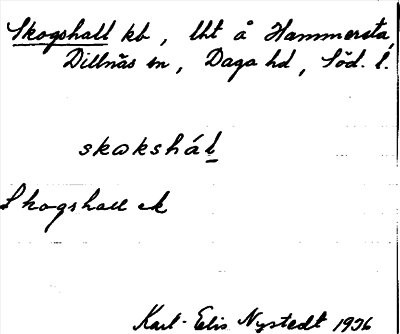 Skogshall kb, lht å Hammersta,
Dillnäs sn, Daga hd, Söd. l.
skɷkshál
Skogshall ek
Karl-Elis Nystedt 1936